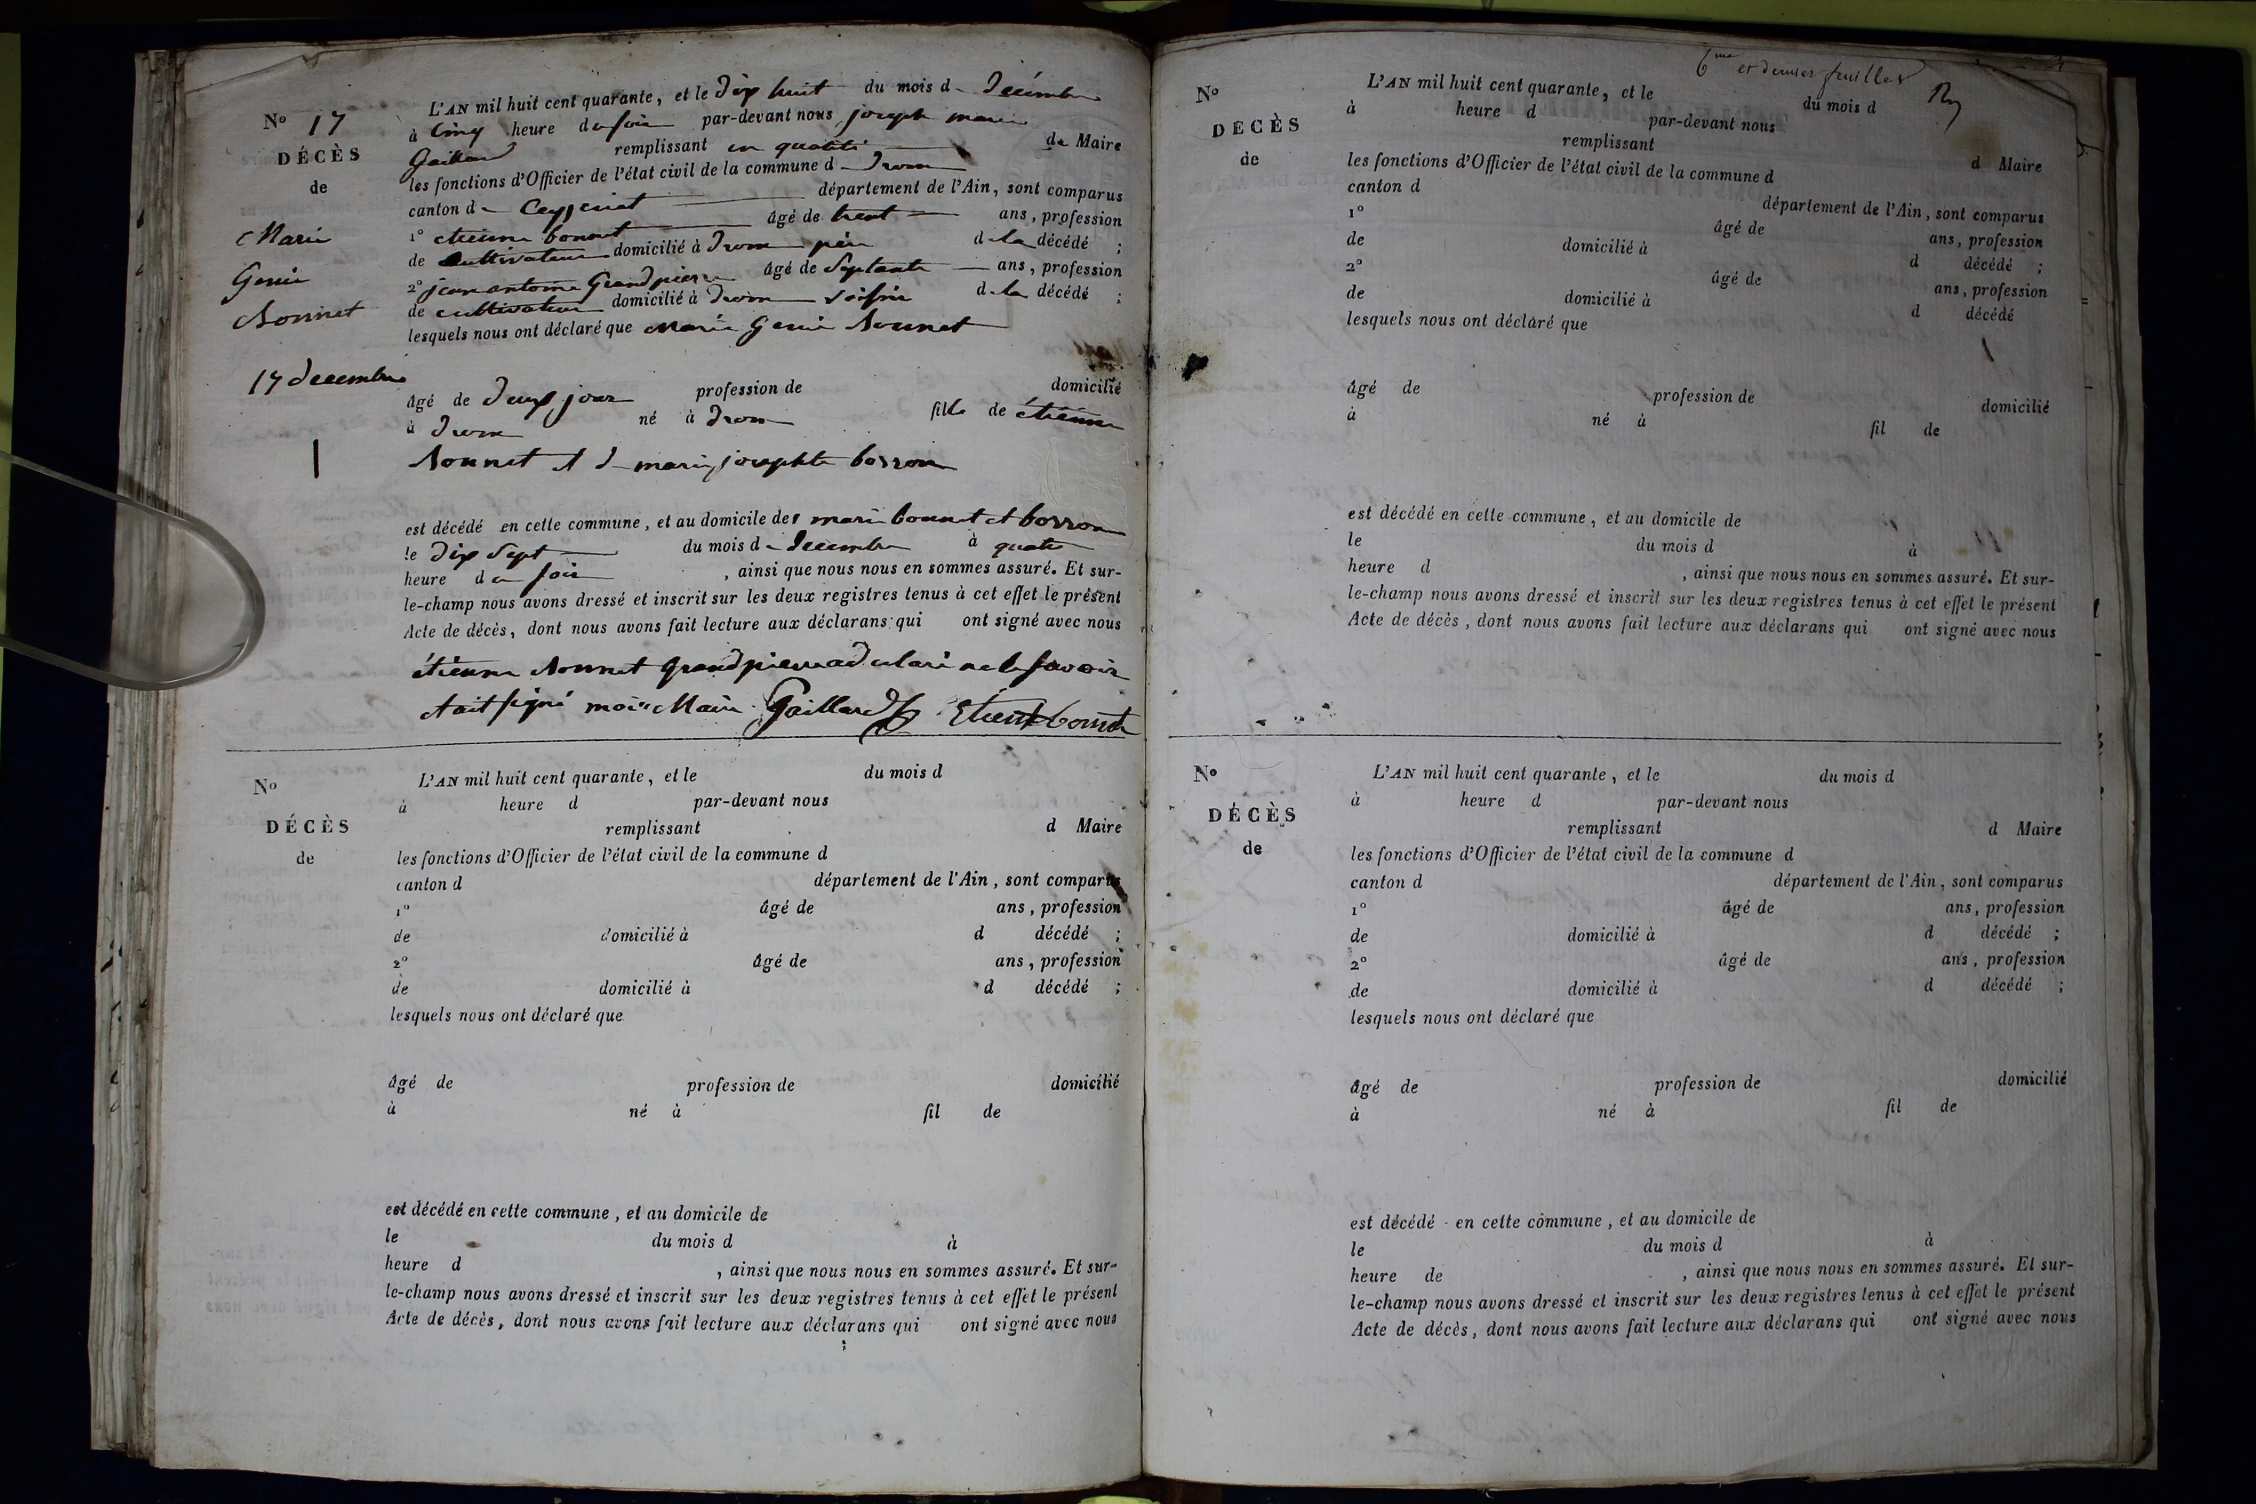 N° 17
DÉCÈS
de
Marie
Genie
Bonnet
17 decembre
L'AN mil huit cent quarante, et le dix huit du mois de decembre
à cinq heure du soir par-devant nous joseph marie
Gaillard remplissant en qualité de Maire
les fonctions d'Officier de l'état civil de la commune de drom
canton de Ceyzeriat département de l'Ain, sont comparus
1° etienne bonnet âgé de trent ans, profession
de cultivateur domicilié à drom père de la décédé ;
2° jean antoine Grandpierre âgé de septante ans, profession
de cultivateur domicilié à drom voisin de la décédé ;
lesquels nous ont déclaré que Marie Genie Bonnet
âgé de deux jour profession de domicilié
à drom né à drom fille de étienne
Bonnet et de marie josephte borron
est décédé en cette commune, et au domicile des marie bonnet et borron
le dix sept du mois de decembre à quatre
heure du soir , ainsi que nous nous en sommes assuré. Et sur-
le-champ nous avons dressé et inscrit sur les deux registres tenus à cet effet le présent
Acte de décès, dont nous avons fait lecture aux déclarans qui ont signé avec nous
étienne Bonnet Grandpierre a declaré ne le savoir
et ait signé moi Maire Gaillard Etienne bonnet
N°
DÉCÈS
de
L'AN mil huit cent quarante, et le du mois d
à heure d par-devant nous
remplissant d Maire
les fonctions d'Officier de l'état civil de la commune d
canton d département de l'Ain, sont comparus
1° âgé de ans, profession
de domicilié à d décédé ;
2° âgé de ans, profession
de domicilié à d décédé ;
lesquels nous ont déclaré que
âgé de profession de domicilié
à né à fil de
est décédé en cette commune, et au domicile de
le du mois d à
heure d , ainsi que nous nous en sommes assuré. Et sur-
le-champ nous avons dressé et inscrit sur les deux registres tenus à cet effet le présent
Acte de décès, dont nous avons fait lecture aux déclarans qui ont signé avec nous
6me et dernier feuillet
N°
DÉCÈS
de
L'AN mil huit cent quarante, et le du mois d
à heure d par-devant nous
remplissant d Maire
les fonctions d'Officier de l'état civil de la commune d
canton d département de l'Ain, sont comparus
1° âgé de ans, profession
de domicilié à d décédé ;
2° âgé de ans, profession
de domicilié à d décédé
lesquels nous ont déclaré que
âgé de profession de domicilié
à né à fil de
est décédé en cette commune, et au domicile de
le du mois d à
heure d , ainsi que nous nous en sommes assuré. Et sur-
le-champ nous avons dressé et inscrit sur les deux registres tenus à cet effet le présent
Acte de décès, dont nous avons fait lecture aux déclarans qui ont signé avec nous
N°
DÉCÈS
de
L'AN mil huit cent quarante, et le du mois d
à heure d par-devant nous
remplissant d Maire
les fonctions d'Officier de l'état civil de la commune d
canton d département de l'Ain, sont comparus
1° âgé de ans, profession
de domicilié à d décédé ;
2° âgé de ans, profession
de domicilié à d décédé ;
lesquels nous ont déclaré que
âgé de profession de domicilié
à né à fil de
est décédé en cette commune, et au domicile de
le du mois d à
heure de , ainsi que nous nous en sommes assuré. Et sur-
le-champ nous avons dressé et inscrit sur les deux registres tenus à cet effet le présent
Acte de décès, dont nous avons fait lecture aux déclarans qui ont signé avec nous